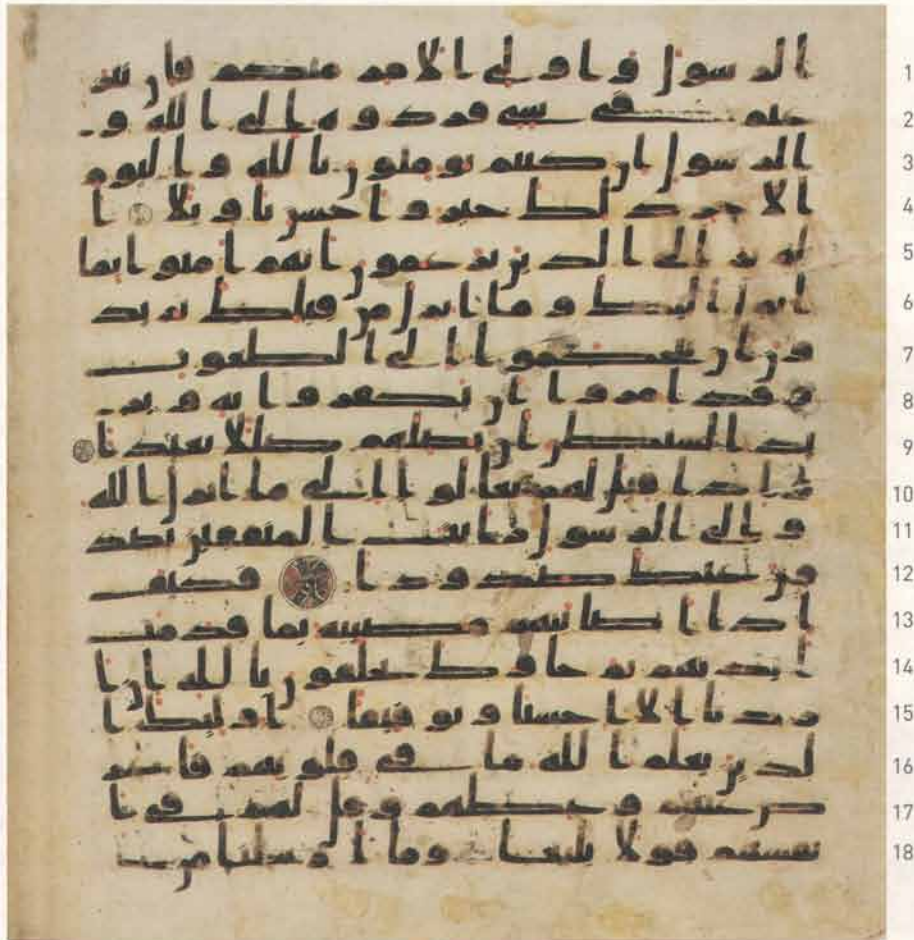 الرسول واولي الامر منكم فان تنـ 1
ـزعتم في شي فردوه الى الله و 2
الرسول ان كنتم تومنون بالله واليوم 3
الاخر ذلك خير واحسن تاويلا ا 4
لم تر الى الذين يزعمون انهم امنوا بما 5
انزل اليك وما انزل من قبلك يريد 6
ون ان يتحكموا الى الطغوت 7
وقد امروا ان يكفروا به وير 8
يد الشيطن ان يضلهم ضللا بعيدا 9
واذا قيل لهم تعالوا الى ما انزل الله 10
والى الرسول رايت المنفقين يصد 11
ون عنك صدودا فكيف 12
اذا اصابتهم مصيبه بما قدمت 13
ايديهم ثم جاوك يحلفون بالله ان ا 14
ردنا الا احسنا وتوفيقا اوليك ا 15
لذين يعلم الله ما في قلوبهم فاعر 16
ض عنهم وعظهم وقل لهم في ا 17
نفسهم قولا بليغا وما ارسلنا من 18